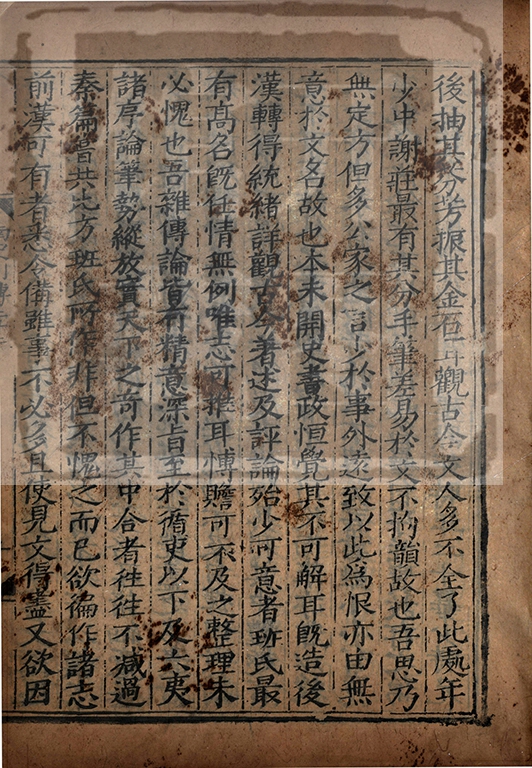 後抽其芬芳振其金石耳觀古今文人多不全了此處年
少中謝莊最有其分手筆差易於文不拘韻故也吾思乃
無定方但多公家之言少於事外遠致以此為恨亦由無
意於文名故也本未開史書政恒覺其不可解耳既造後
漢轉得統緒詳觀古今著述及評論殆少可意者班氏最
有髙名既任情無例唯志可推耳博贍可不及之整理未
必愧也吾雜傳論皆有精意深旨至於循吏以下及六夷
諸序論筆勢縱放實天下之竒作其中合者往往不減過
秦篇嘗共比方班氏所作非但不愧之而已欲徧作諸志
前漢可有者悉令備雖事不必多且使見文得盡又欲因